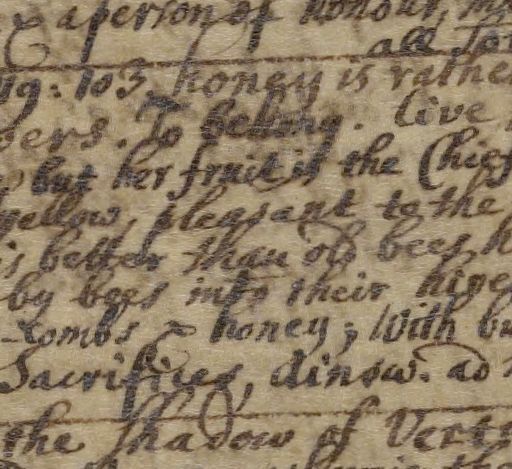 & a person of honour, m
all so
19:103. honey is rathe
bers. To belong. live
but her fruit is the Chief
yellow, pleasant to the
is better than old bees h
by bees into their hive
-combs & honey; With bu
Sacrifices, ainsw. ad
the shadow of Verts